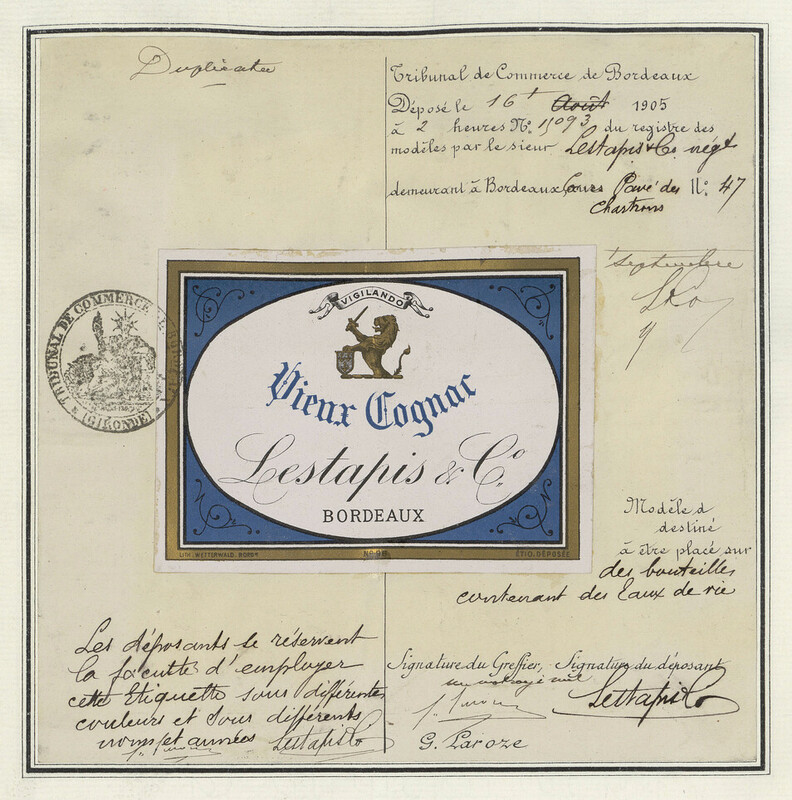 Duplicata
Tribunal de Commerce de Bordeaux
Déposé le 16 Août 1905
à 2 heures N° 11093 du registre des
modèles par le sieur Lestapis & Co négt
demeurant à Bordeaux Cours Pavé des N° 47
Chartrons
Septembre
TRIBUNAL DE COMMERCE
(GIRONDE)
VIGILANDO
Vieux Cognac
Lestapis & Co
BORDEAUX
LITH. WETTERWALD BORDx
No 911
ETIQ. DÉPOSÉE
Modèle d
destiné
à être placé sur
des bouteilles
contenant des Eaux de vie
Les déposants se réservent
la faculté d'employer
cette Etiquette sous différentes
couleurs et sous différents
noms et années Lestapis & Co
Signature du Greffier, Signature du déposant
Lestapis & Co
G. Laroze